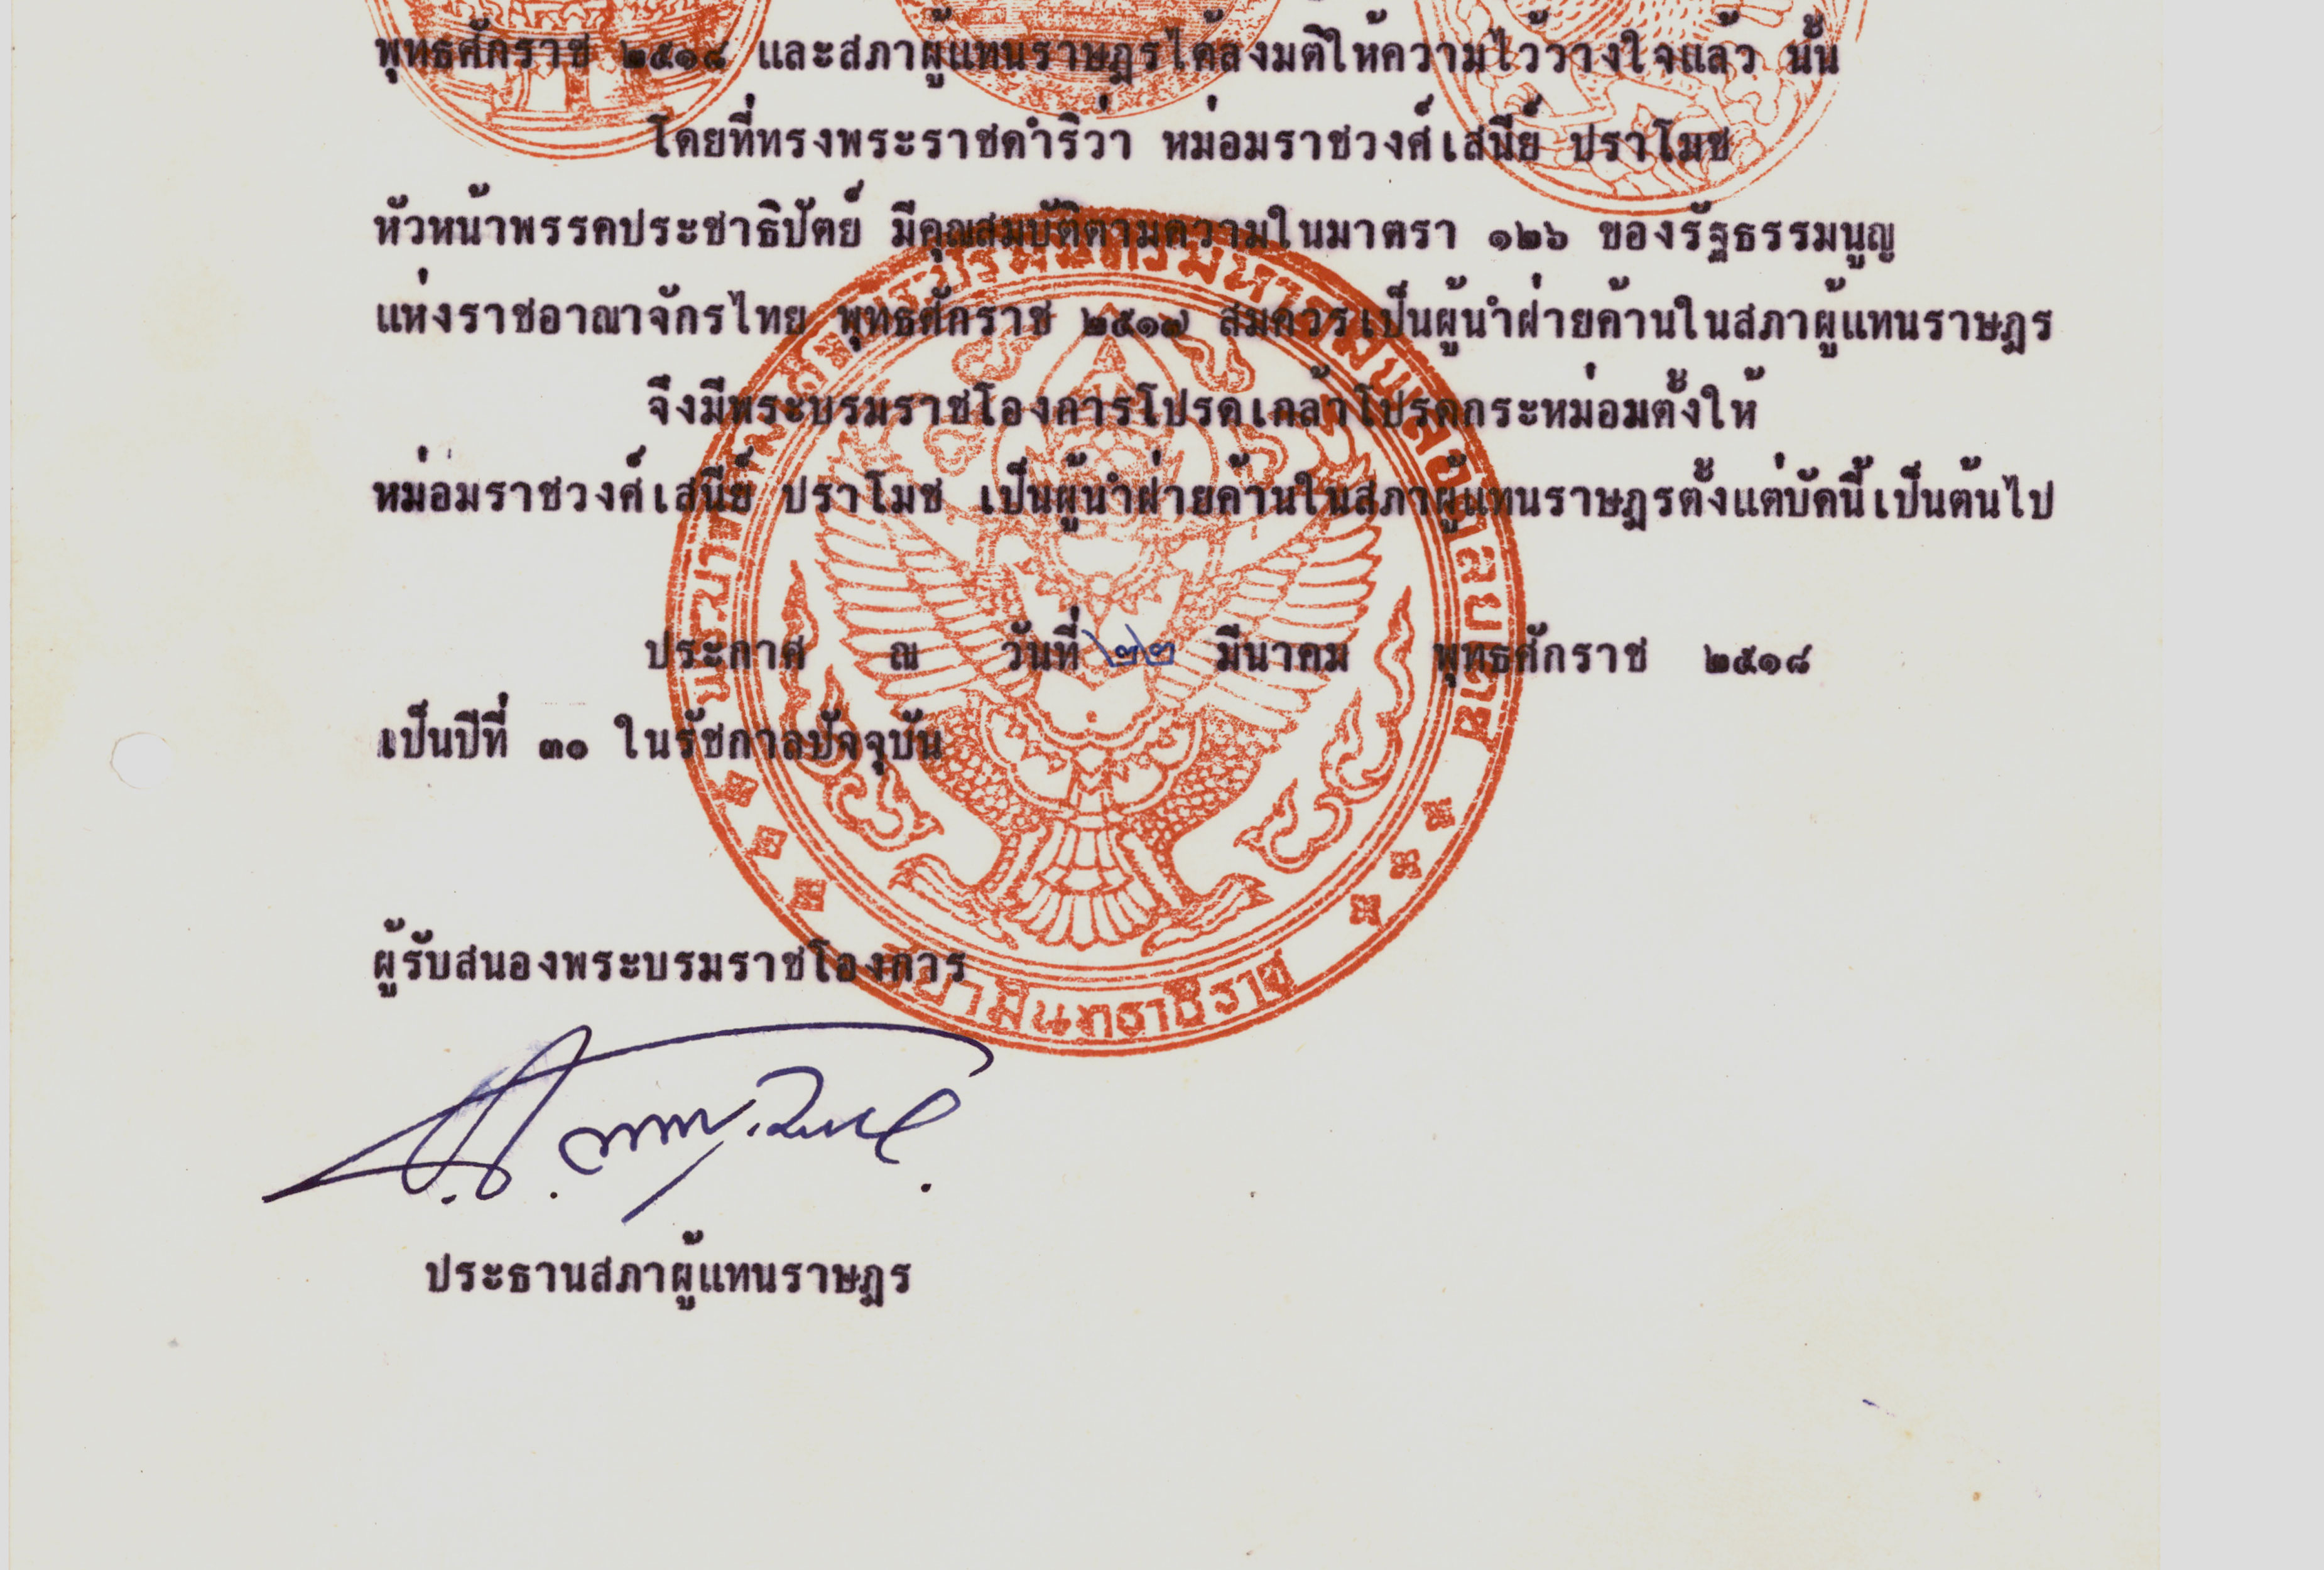 พุทธศักราช ๒๕๑๘ และสภาผู้แทนราษฎรได้ลงมติให้ความไว้วางใจแล้ว นั้น
โดยที่ทรงพระราชดำริว่า หม่อมราชวงศ์เสนีย์ ปราโมช
หัวหน้าพรรคประชาธิปัตย์ มีคุณสมบัติตามความในมาตรา ๑๒๖ ของรัฐธรรมนูญ
แห่งราชอาณาจักรไทย พุทธศักราช ๒๕๑๗ สมควรเป็นผู้นำฝ่ายค้านในสภาผู้แทนราษฎร
จึงมีพระบรมราชโองการโปรดเกล้าโปรดกระหม่อมตั้งให้
หม่อมราชวงศ์เสนีย์ ปราโมช เป็นผู้นำฝ่ายค้านในสภาผู้แทนราษฎรตั้งแต่บัดนี้เป็นต้นไป
ประกาศ ณ วันที่ ๒๒ มีนาคม พุทธศักราช ๒๕๑๘
เป็นปีที่ ๓๐ ในรัชกาลปัจจุบัน
ผู้รับสนองพระบรมราชโองการ
ประธานสภาผู้แทนราษฎร
สยามินทราธิราช